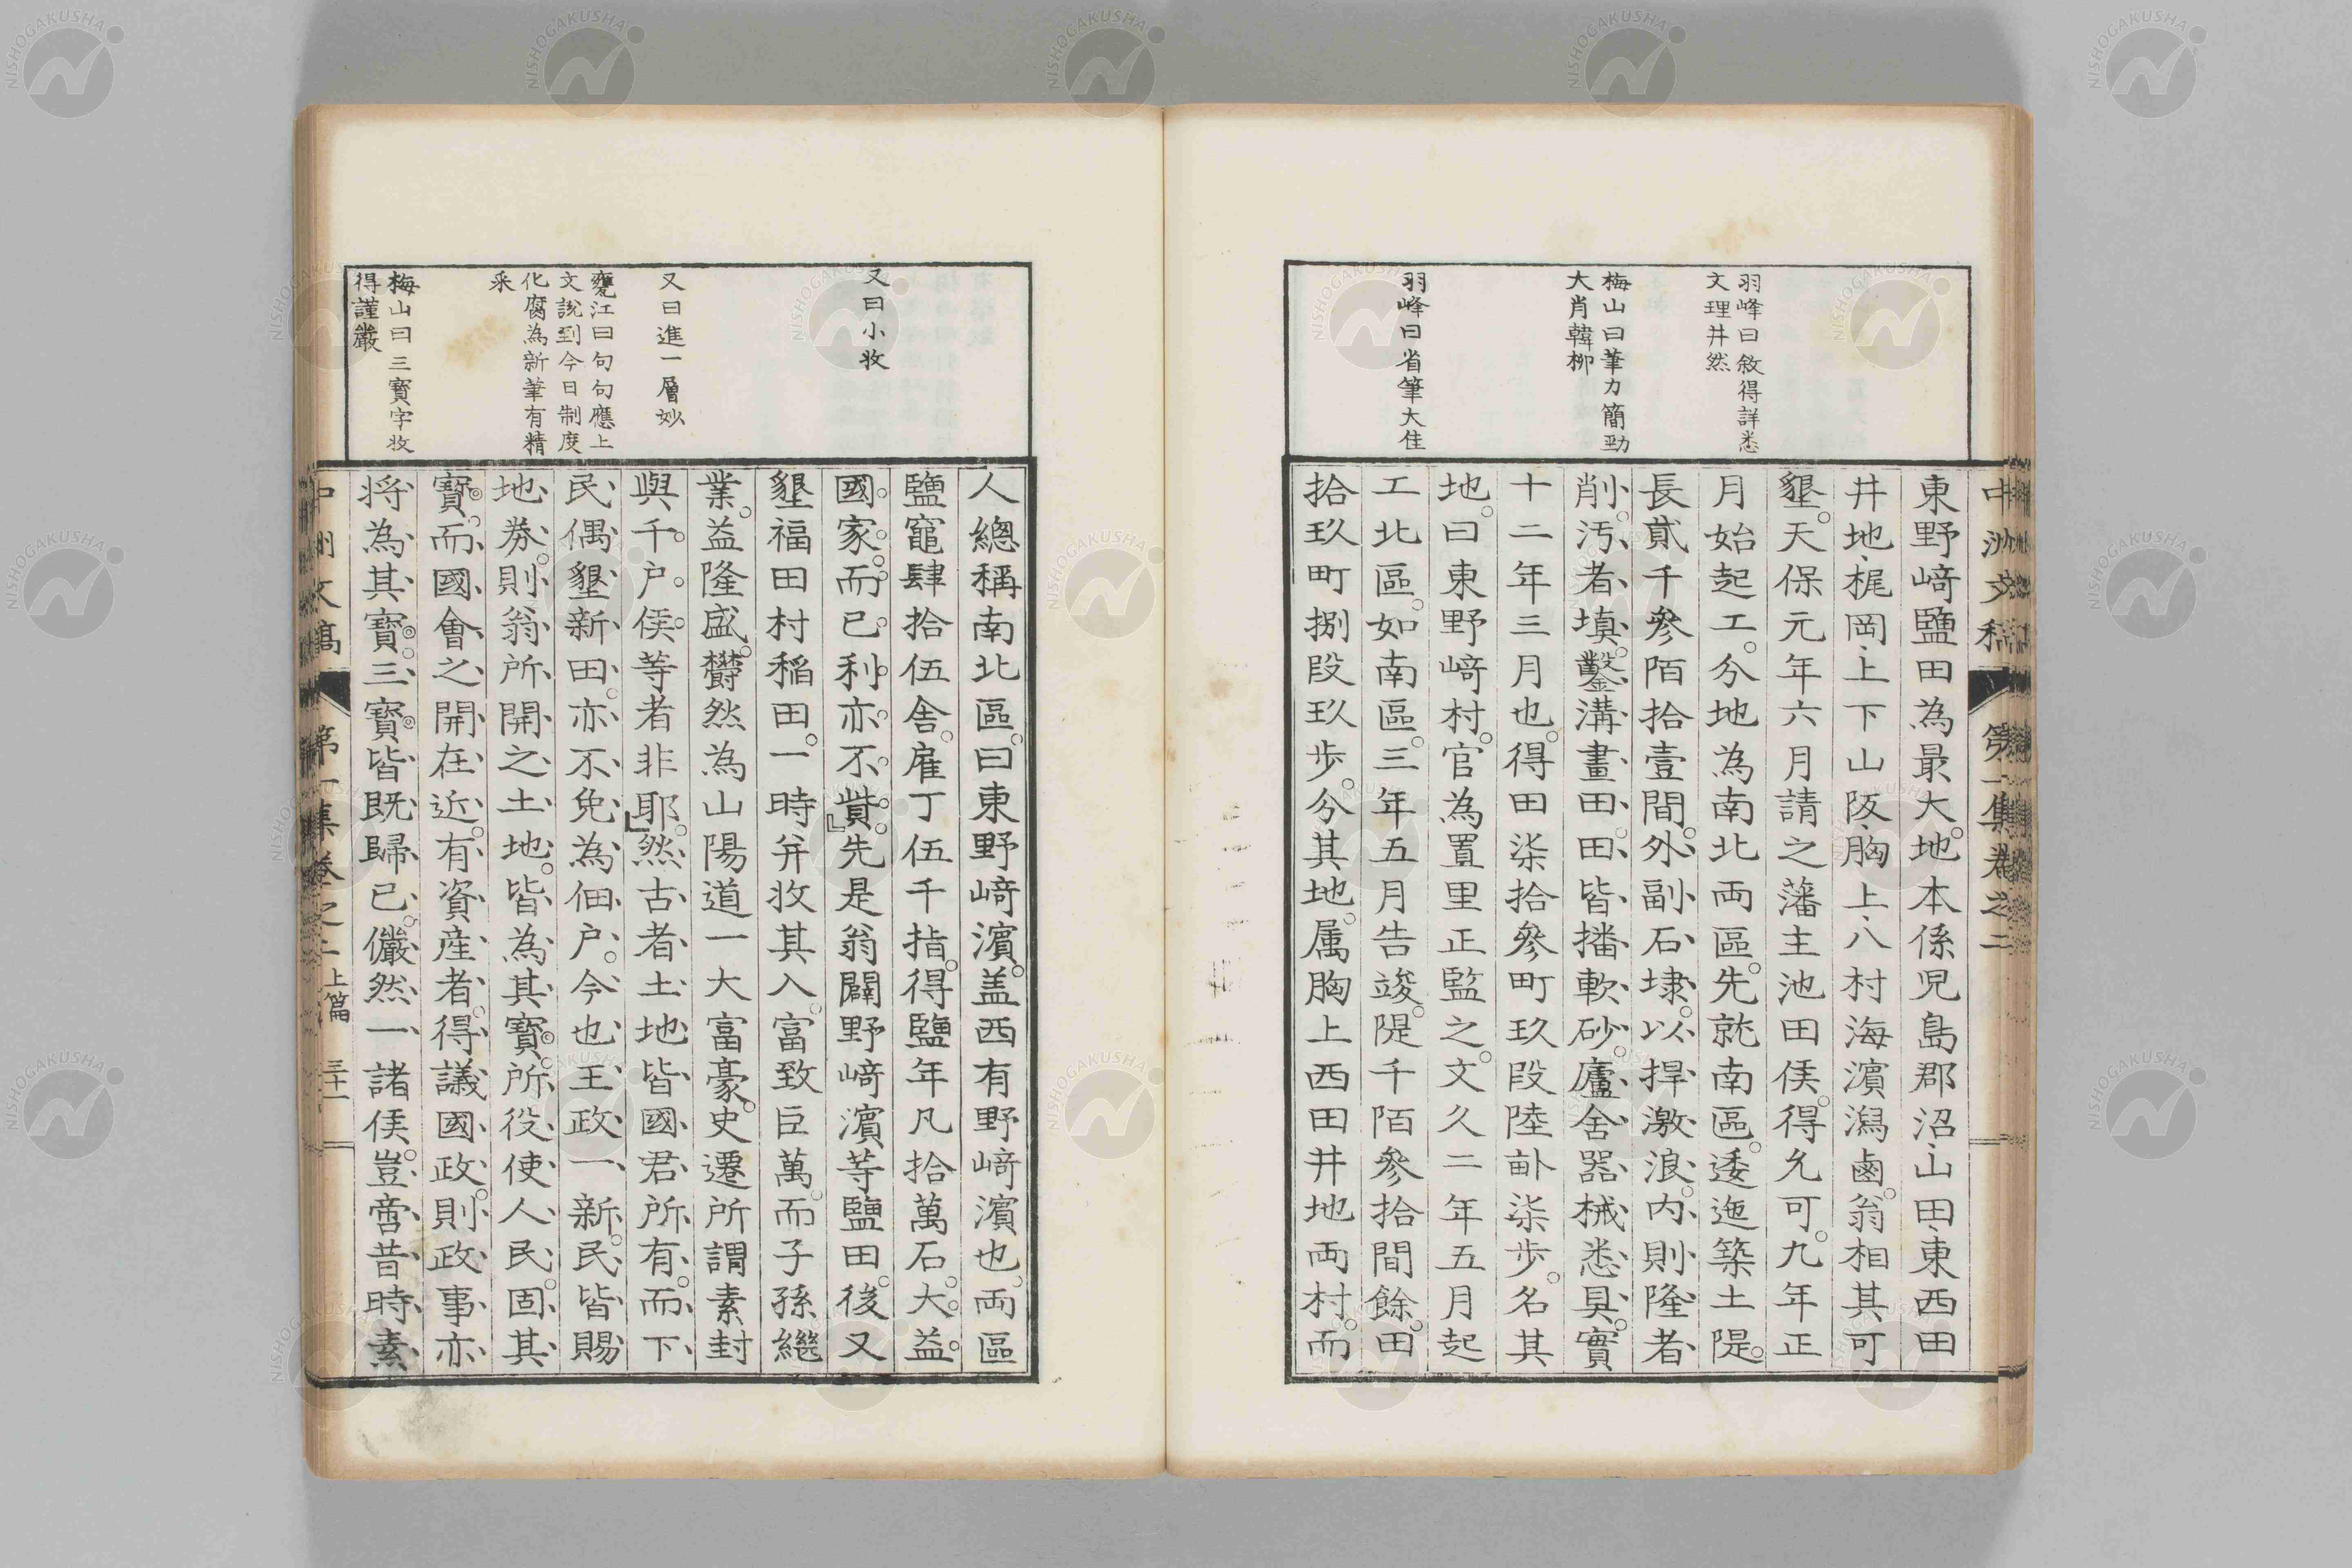 中洲文稿 第一集卷之二
羽峰曰敘得詳悉
文理井然
梅山曰筆力簡勁
大肖韓柳
羽峰曰省筆大佳
東野﨑鹽田為最大。地本係児島郡沼、山田、東西田
井地、梶岡、上下山阪、胸上、八村海濱潟鹵。翁相其可
墾。天保元年六月請之藩主池田侯。得允可。九年正
月始起工。分地為南北兩區。先就南區。逶迤築土隄。
長貳千參陌拾壹間。外副石埭。以捍激浪。内則隆者
削。汚者填。鑿溝畫田。田皆播軟砂。廬舍器械悉具。實
十二年三月也。得田柒拾參町玖段陸畝柒步。名其
地。曰東野﨑村。官為置里正監之。文久二年五月起
工北區。如南區。三年五月告竣。隄千陌參拾間餘。田
拾玖町捌段玖步。分其地。属胸上西田井地兩村。而
又曰小收
又曰進一層妙
甕江曰句句應上
文說到今日制度
化腐為新筆有精
采
梅山曰三寳字收
得謹嚴
人總稱南北區。曰東野﨑濱。盖西有野﨑濱也。兩區
鹽竈肆拾伍舍。雇丁伍千指。得鹽年凡拾萬石。大益
國家。而已利亦不貲。』先是翁闢野﨑濱等鹽田。後又
墾福田村稲田。一時并收其入。富致巨萬。而子孫繼
業。益隆盛。欝然為山陽道一大富豪。史遷所謂素封
與千户侯等者非耶。』然古者土地皆國君所有。而下
民偶墾新田。亦不免為佃户。今也王政一新。民皆賜
地劵。則翁所開之土地。皆為其寳。所役使人民。固其
寳。而國會之開在近。有資産者。得議國政。則政事亦
将為其寳。三寳皆既歸已。儼然一諸侯。豈啻昔時素
中洲文稿 第一集卷之二 上篇 三十一
NISHOGAKUSHA